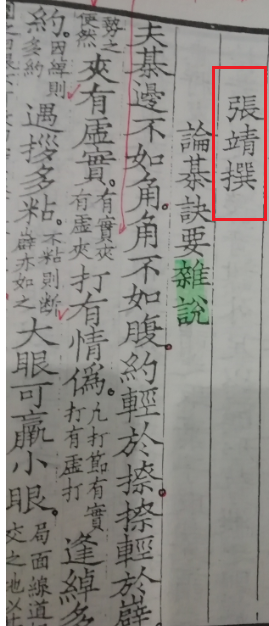 張靖撰
論棊訣要雜說
夫棊邊不如角角不如腹約輕於捺捺輕於嶭
勢之便然夾有虛實有實夾有虛夾打有情僞凡打節有實打有虛打逢綽多
約因綽則多約遇拶多粘不粘則断嶭亦如之大眼可贏小眼局面線道交之地